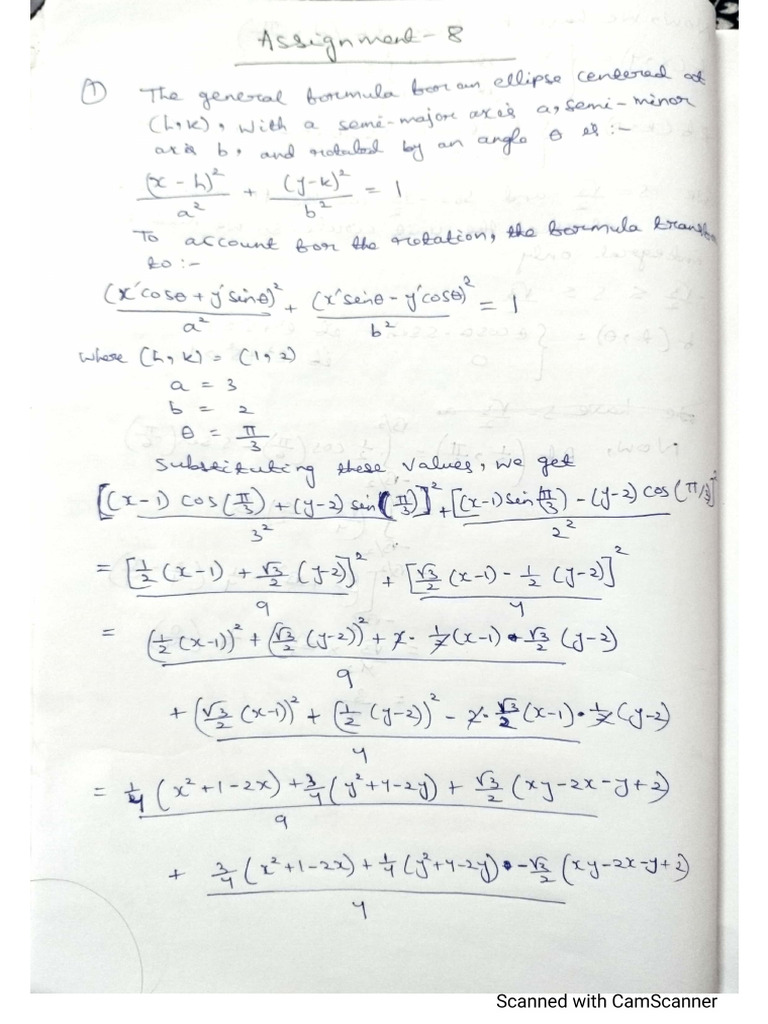 Assignment - 8
① The general formula for an ellipse centered at
(h, k), with a semi-major axis a, semi-minor
axis b, and rotated by an angle θ is :-
(x - h)²/a² + (y-k)²/b² = 1
To account for the rotation, the formula transfo
to :-
(x'cosθ + y'sinθ)²/a² + (x'sinθ - y'cosθ)²/b² = 1
where (h, k) = (1, 2)
a = 3
b = 2
θ = π/3
Substituting these values, we get
[(x-1) cos(π/3) + (y-2) sin(π/3)]²/3² + [(x-1) sin(π/3) - (y-2) cos(π/3)]²/2²
= [1/2 (x-1) + √3/2 (y-2)]²/9 + [√3/2 (x-1) - 1/2 (y-2)]²/4
= (1/2 (x-1))² + (√3/2 (y-2))² + 2 · 1/2 (x-1) · √3/2 (y-2)/9
+ (√3/2 (x-1))² + (1/2 (y-2))² - 2 · √3/2 (x-1) · 1/2 (y-2)/4
= 1/4 (x²+1-2x) + 3/4 (y²+4-2y) + √3/2 (xy-2x-y+2)/9
+ 3/4 (x²+1-2x) + 1/4 (y²+4-2y) - √3/2 (xy-2x-y+2)/4
Scanned with CamScanner